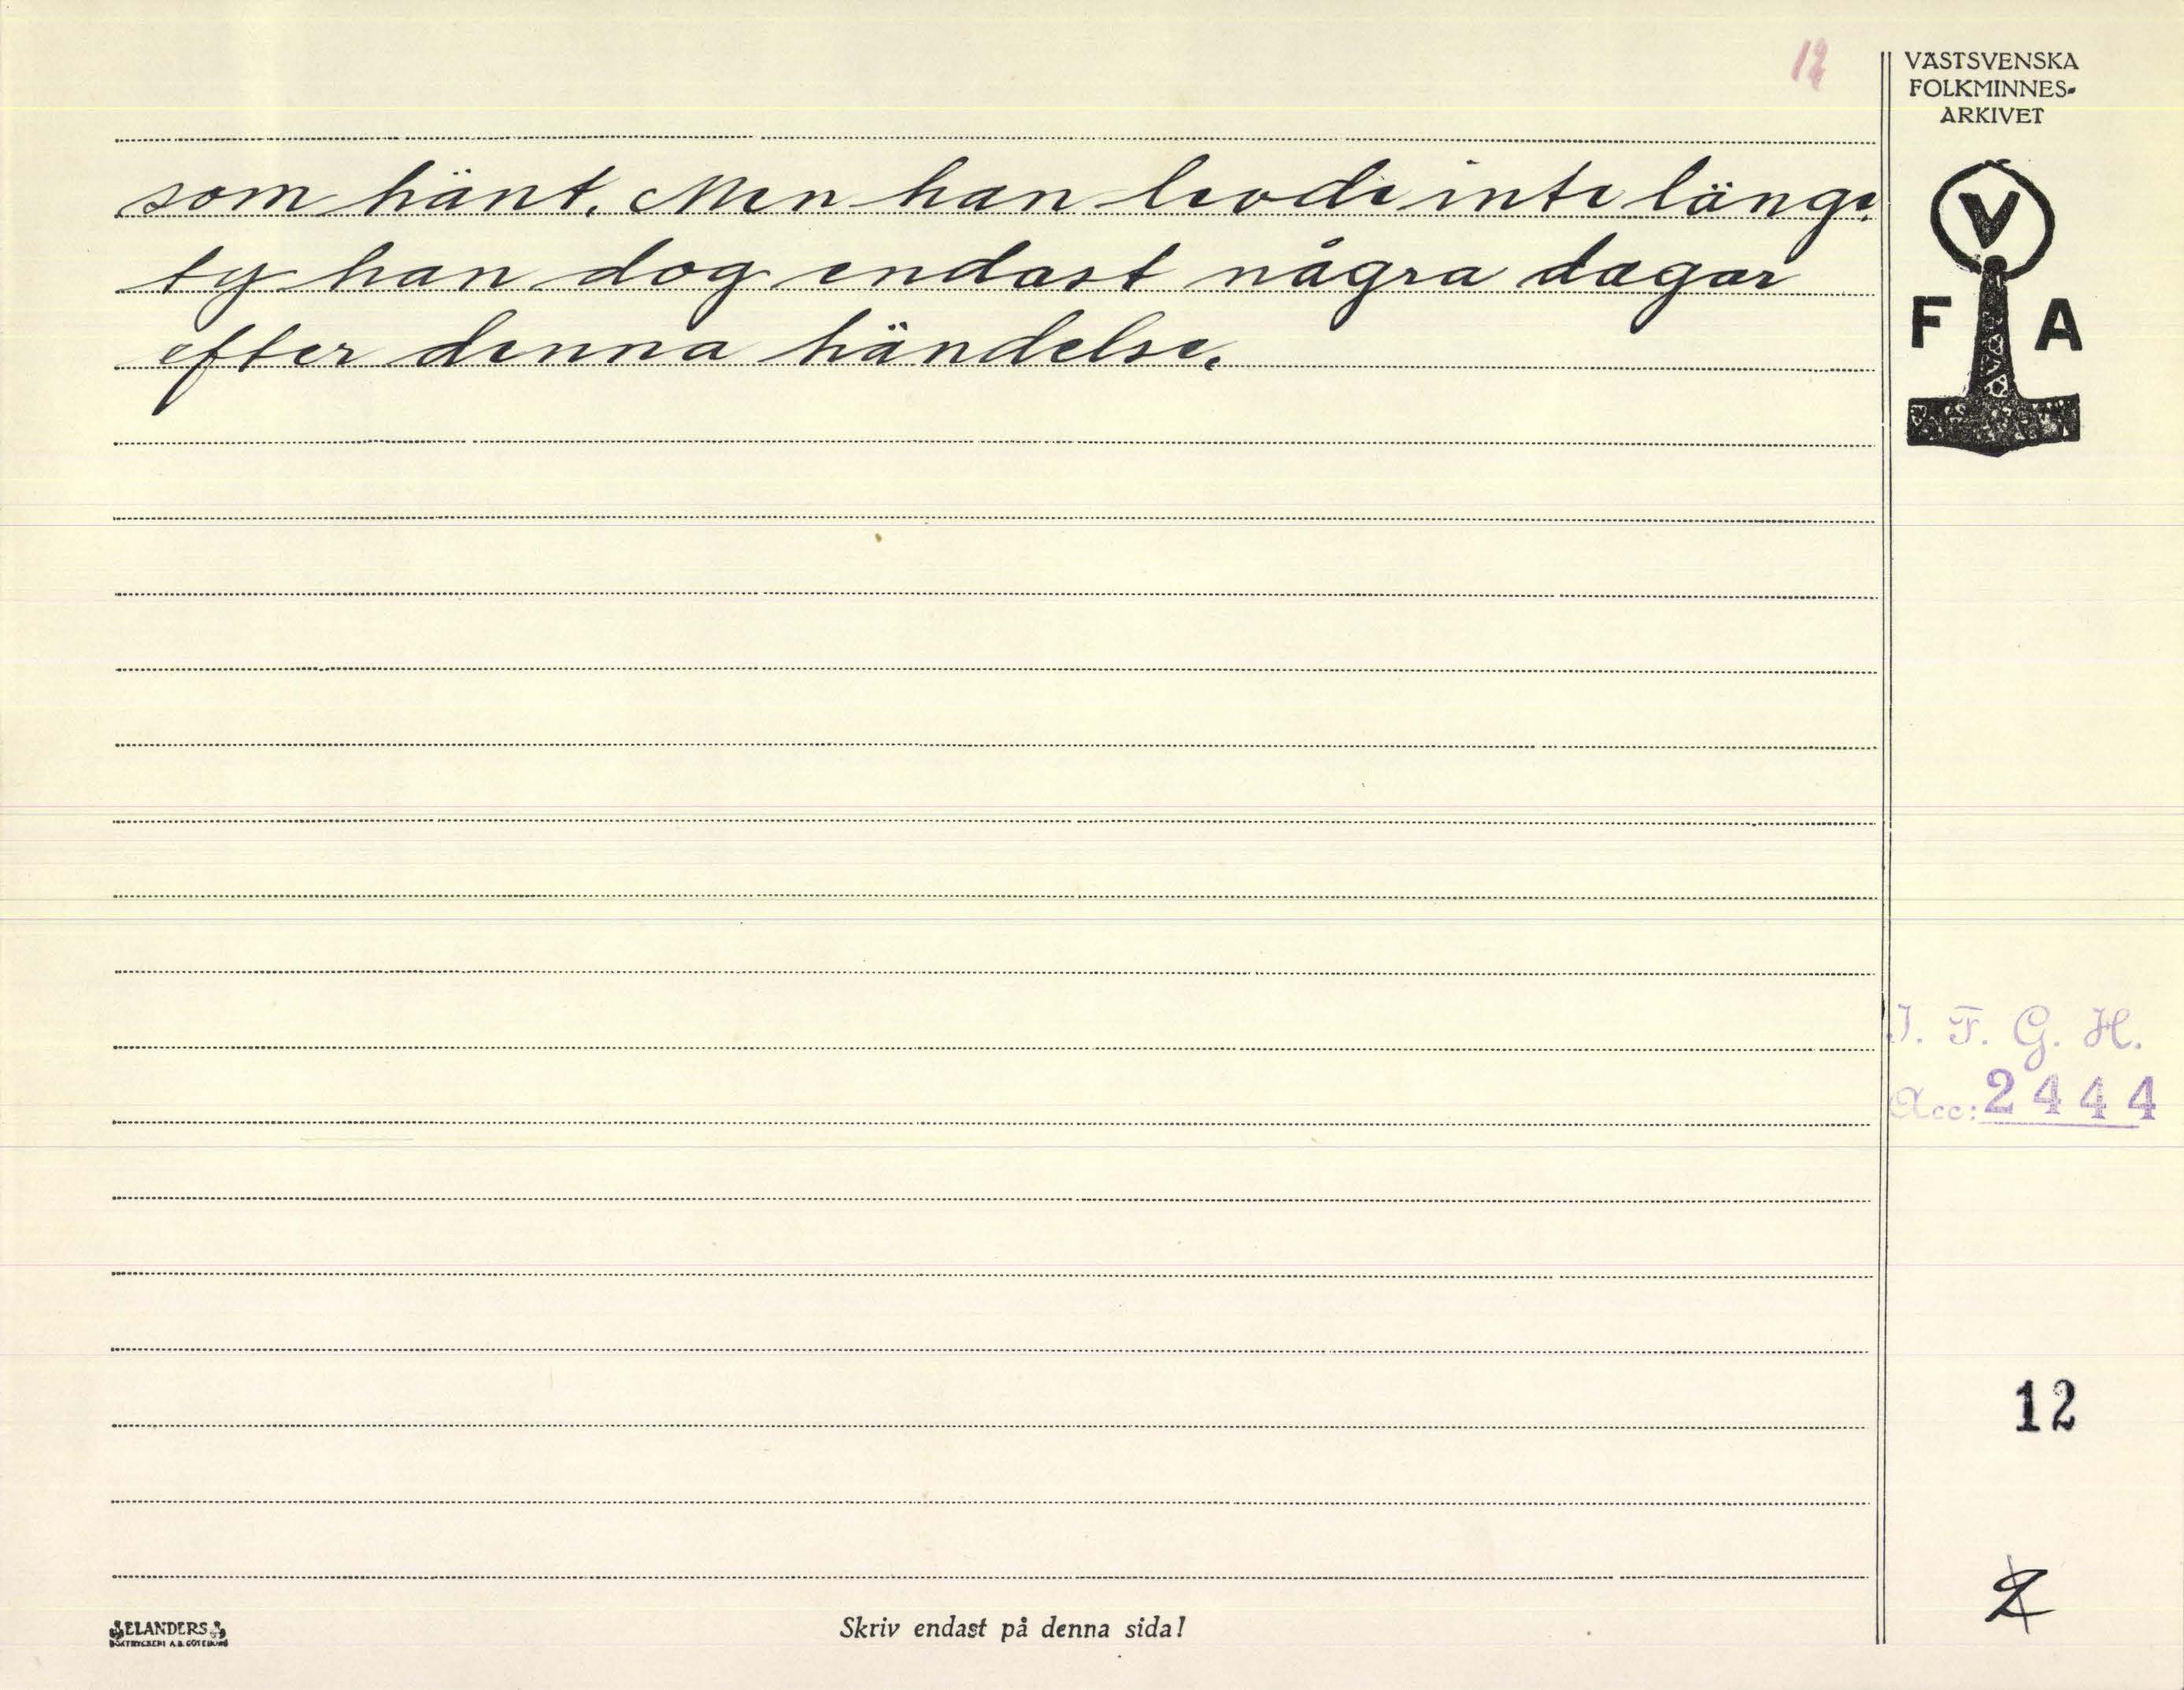 12
VÄSTSVENSKA
FOLKMINNES-
ARKIVET
V
F A
som hänt. Men han levde inte länge.
ty han dog endast några dagar
efter denna händelse.
I. F. G. H.
Acc: 2444
12
2
ELANDERS
BOKTRYCKERI A.B. GÖTEBORG
Skriv endast på denna sida!